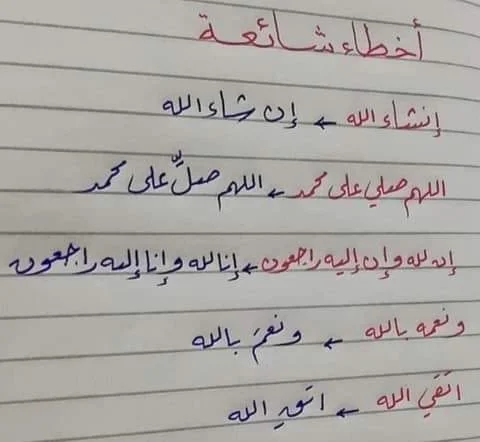 أخطاء شائعة
إنشاء الله ← إن شاء الله
اللهم صلي على محمد ← اللهم صلِّ على محمد
إن لله وإن إليه راجعون ← إنا لله وإنا إليه راجعون
ونعمه بالله ← ونعمَ بالله
اتقي الله ← اتقِ الله